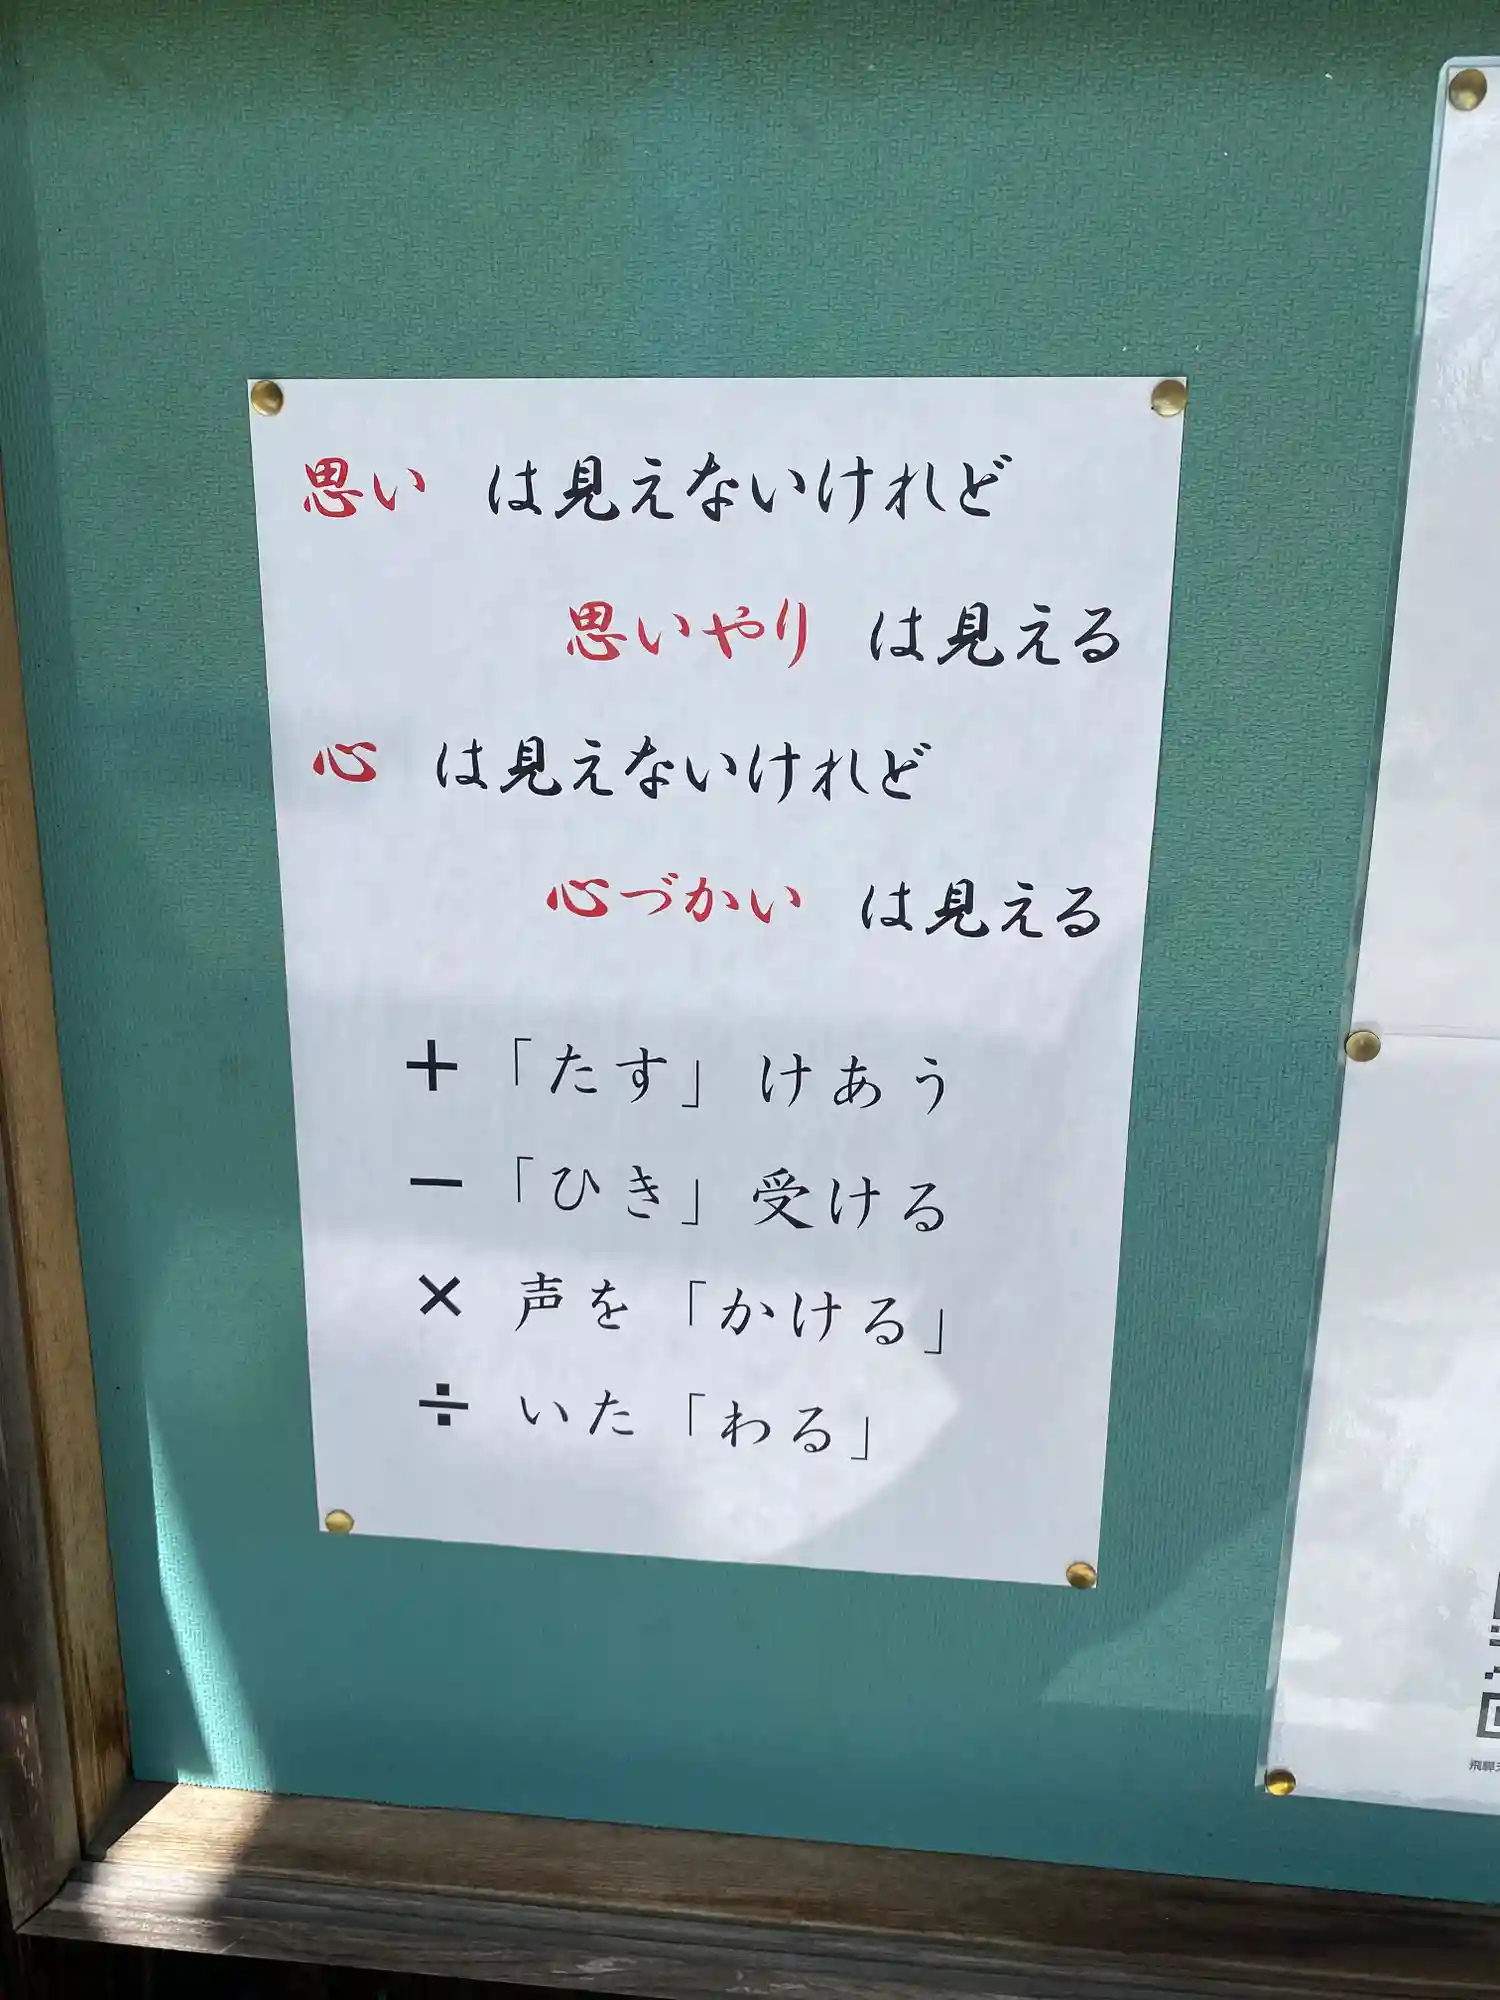 思い は見えないけれど
思いやり は見える
心 は見えないけれど
心づかい は見える
＋「たす」けあう
－「ひき」受ける
× 声を「かける」
÷ いた「わる」
飛騨